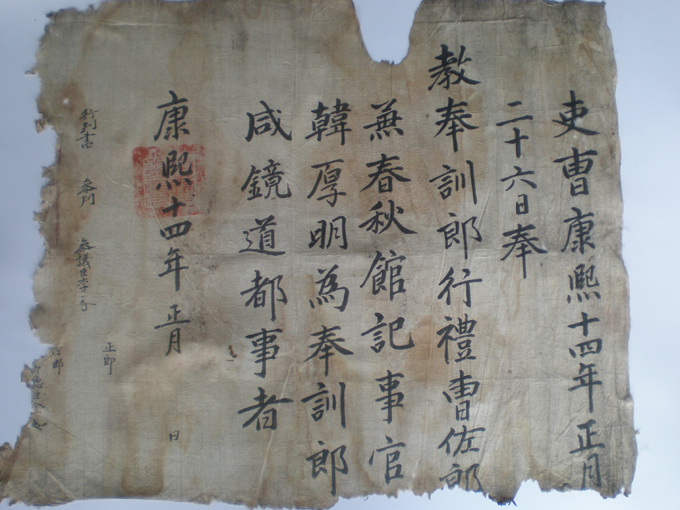 吏曹康熙十四年正月
二十六日奉
教奉訓郎行禮曹佐郎
兼春秋館記事官
韓厚明為奉訓郎
咸鏡道都事者
康熙十四年正月 日
行判書 參判 參議臣李
正郎